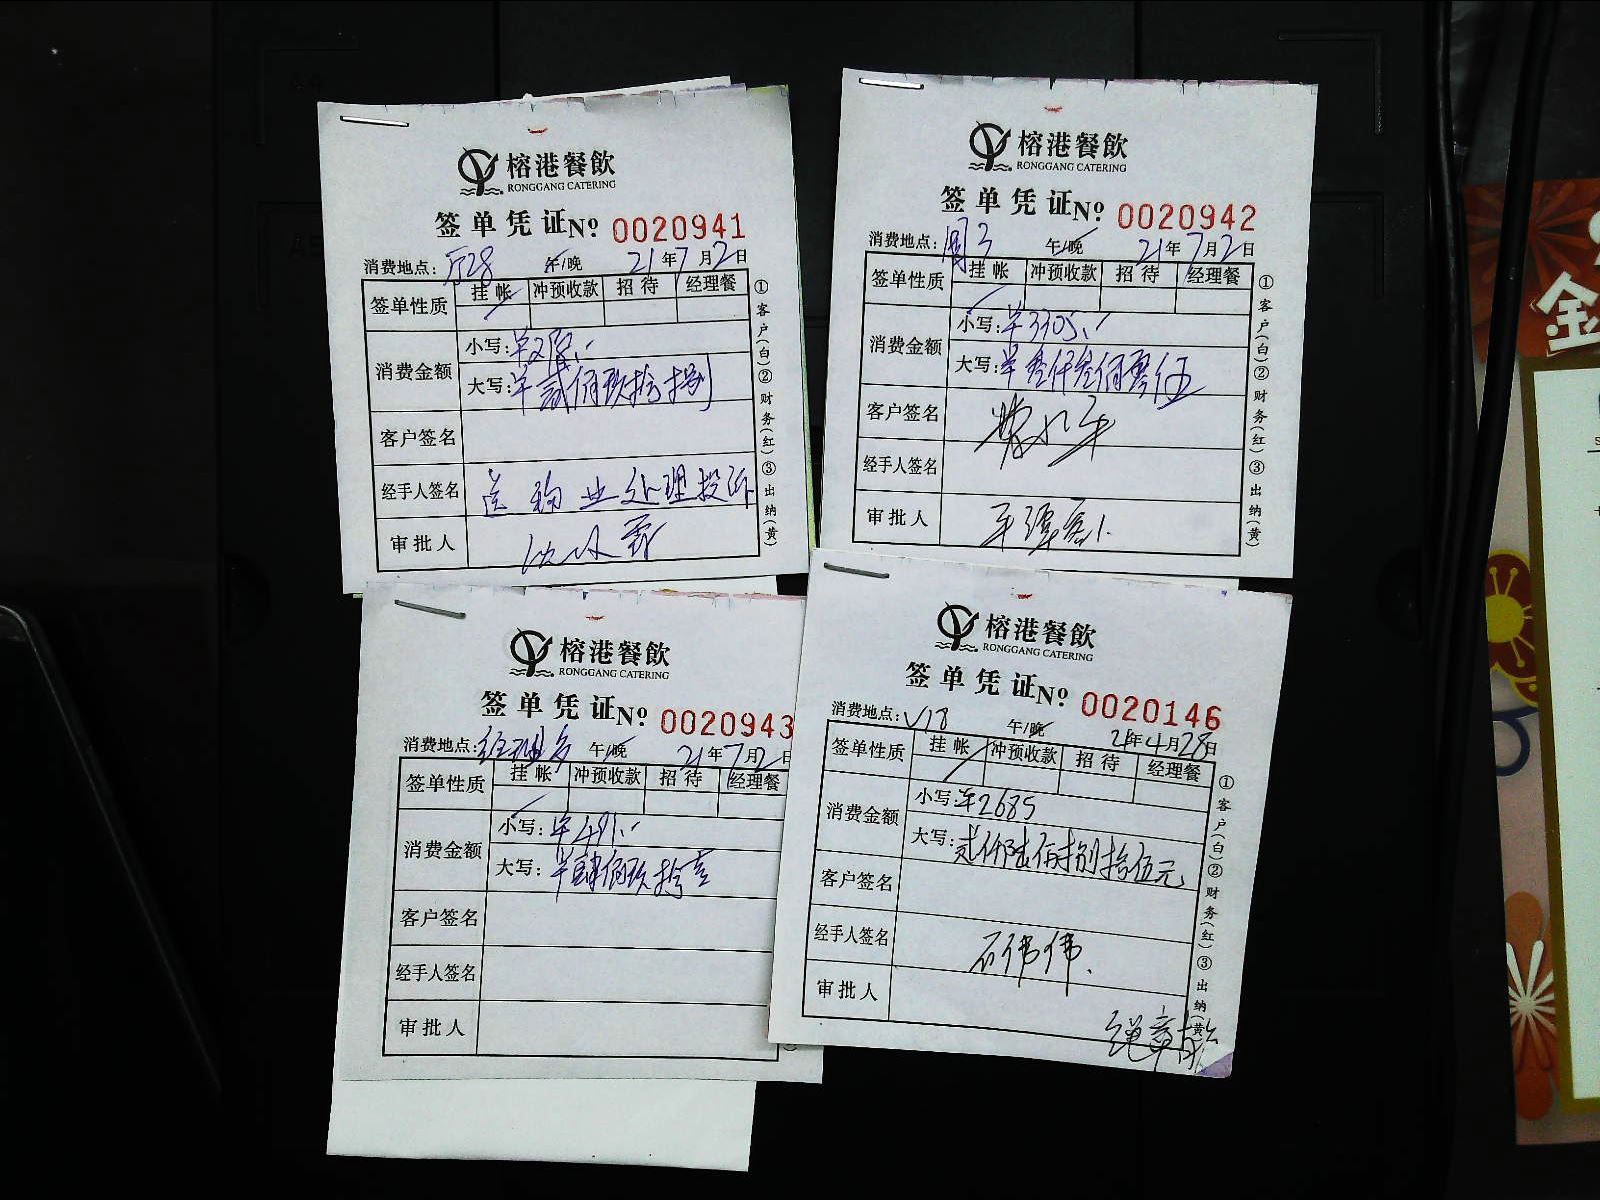 榕港餐飲
RONGGANG CATERING
签单凭证 Nº 0020941
消费地点: 厅28 午/晚 21年7月2日
签单性质 挂帐 冲预收款 招待 经理餐
消费金额 小写:
大写: 贰佰玖拾捌
客户签名
经手人签名 处理投诉
审批人
①客户(白)②财务(红)③出纳(黄)
榕港餐飲
RONGGANG CATERING
签单凭证 Nº 0020942
消费地点: 午/晚 21年7月2日
签单性质 挂帐 冲预收款 招待 经理餐
消费金额 小写: ¥3305.-
大写: ¥叁仟叁佰零伍
客户签名
经手人签名
审批人
①客户(白)②财务(红)③出纳(黄)
榕港餐飲
RONGGANG CATERING
签单凭证 Nº 0020943
消费地点: 经理 午/晚 21年7月2日
签单性质 挂帐 冲预收款 招待 经理餐
消费金额 小写: ¥491.-
大写: ¥肆佰玖拾壹
客户签名
经手人签名
审批人
榕港餐飲
RONGGANG CATERING
签单凭证 Nº 0020146
消费地点: V18 午/晚 21年4月28日
签单性质 挂帐 冲预收款 招待 经理餐
消费金额 小写: ¥2685
大写: 贰仟陆佰捌拾伍元
客户签名
经手人签名 石伟伟
审批人
①客户(白)②财务(红)③出纳(黄)
金